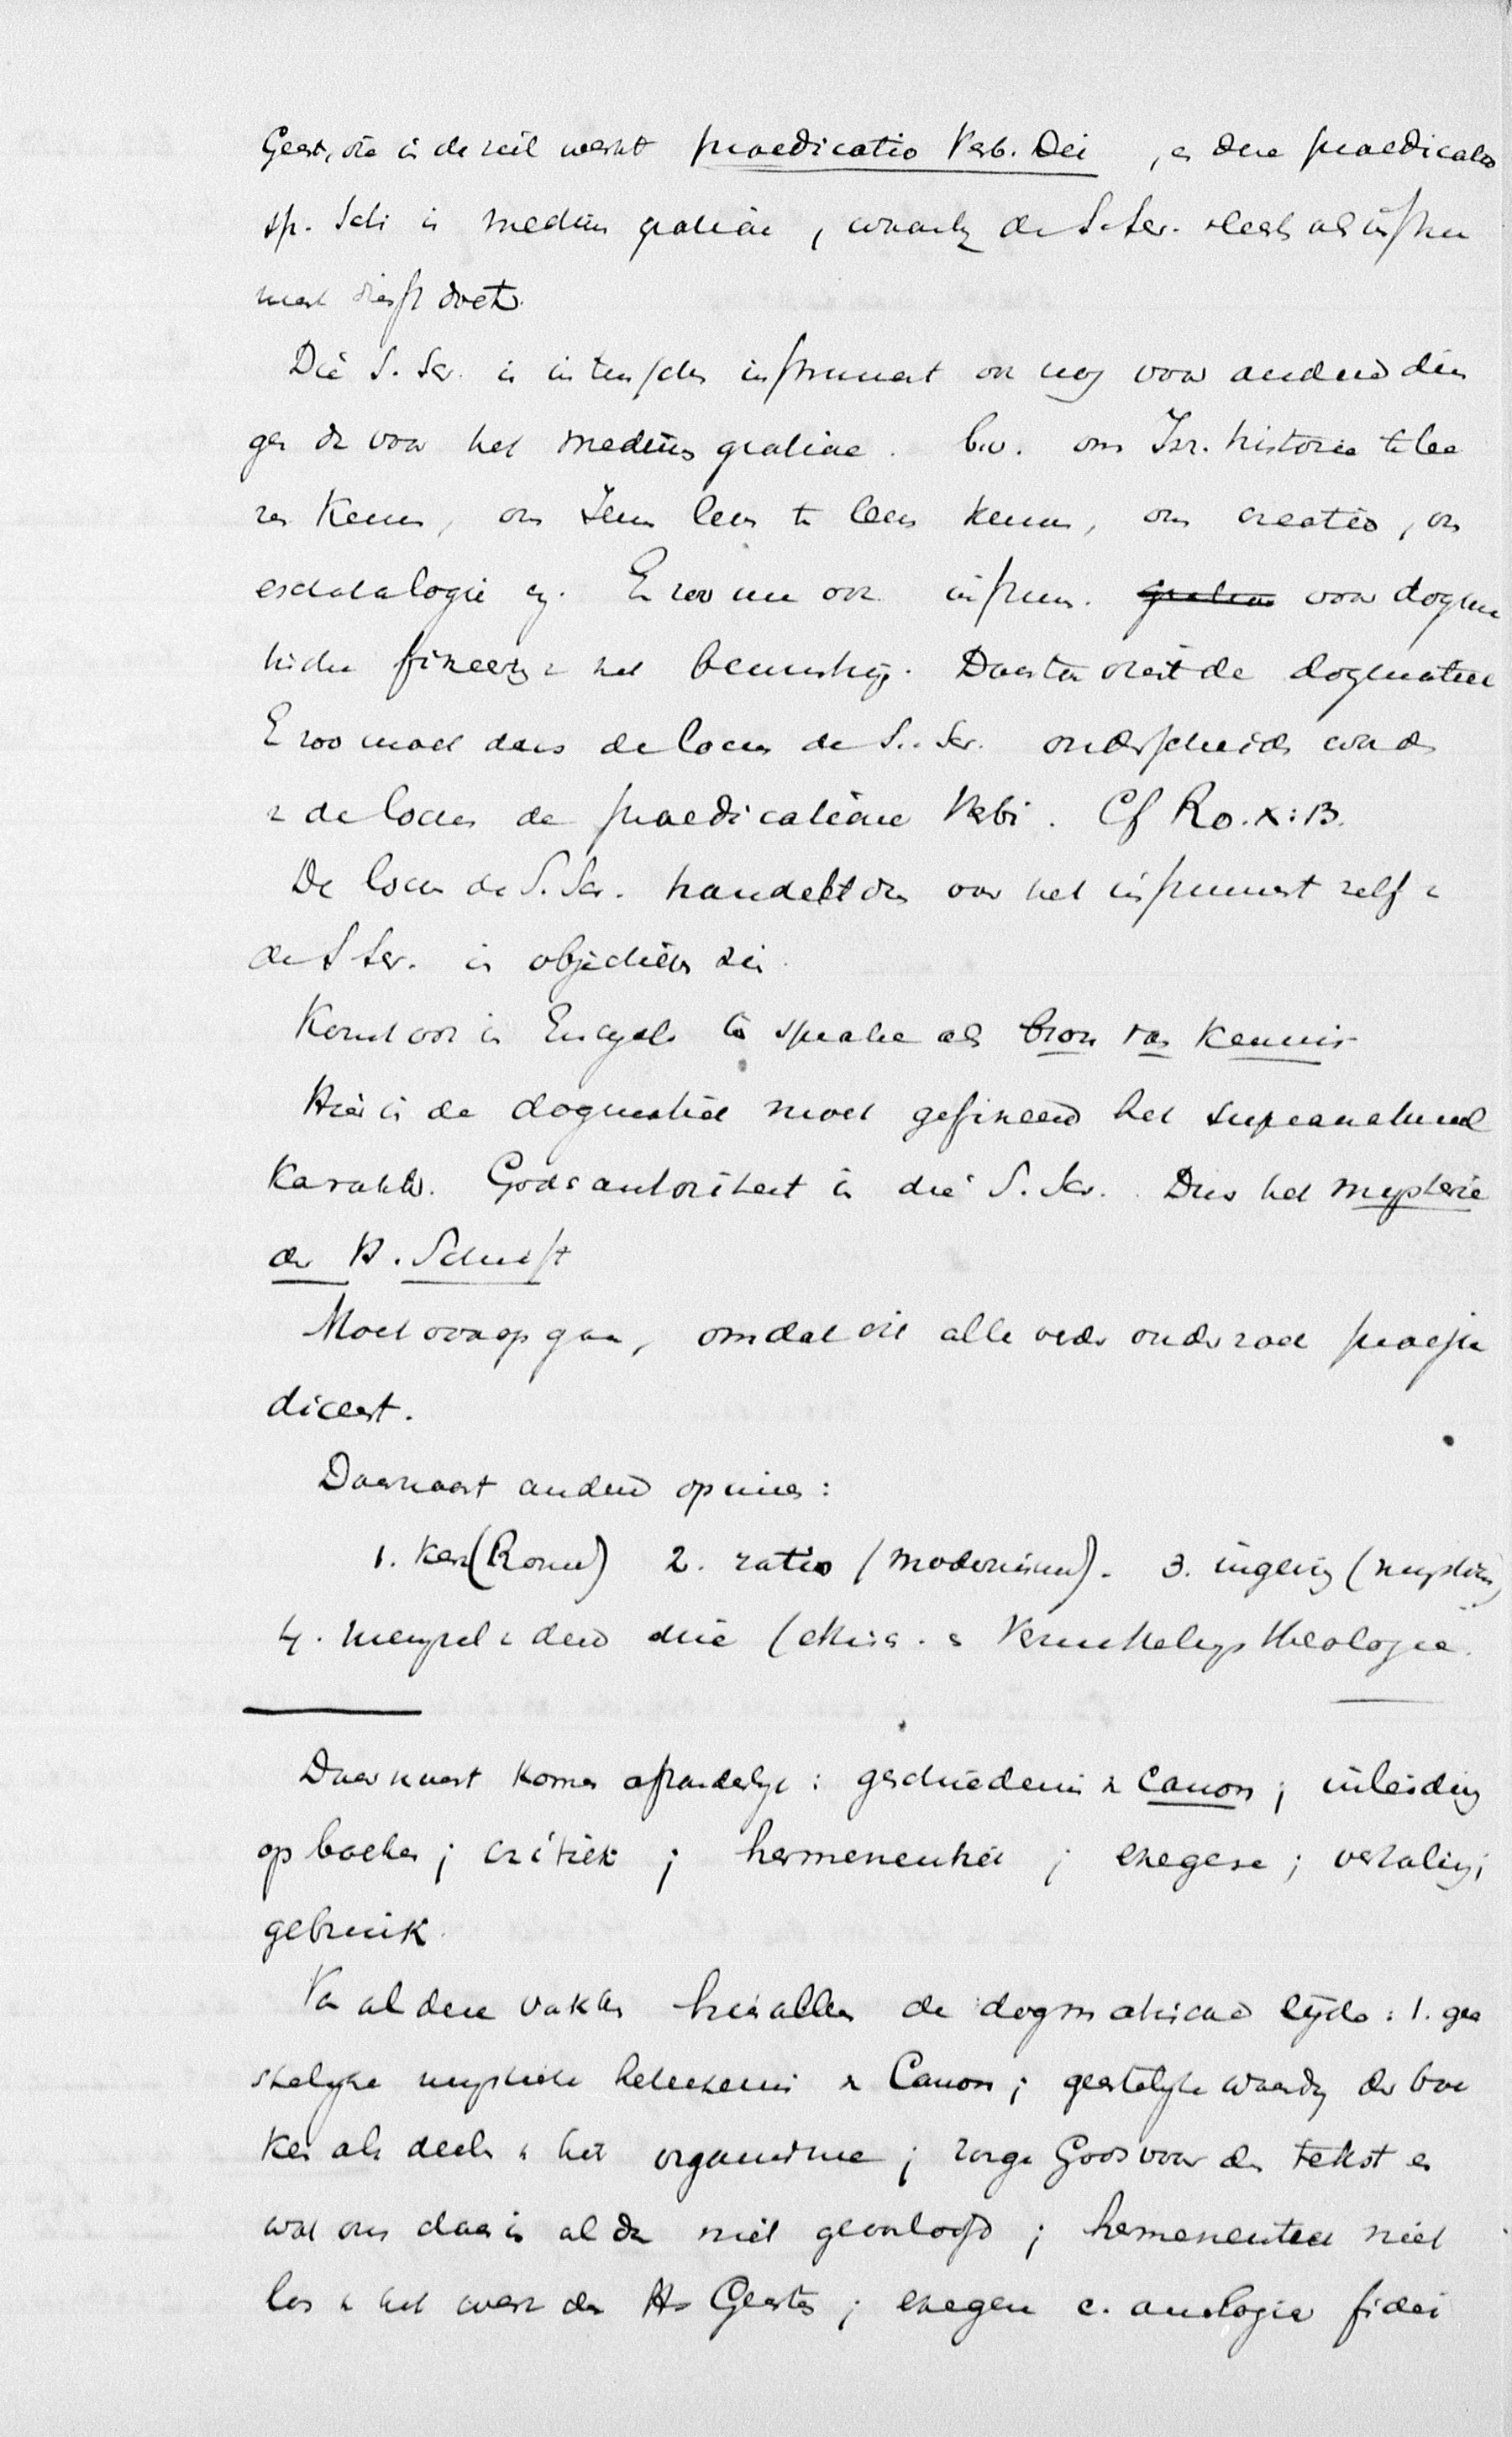 Geest, die in de ziel werkt praedicatio Verb. Dei , en deze praedicatio
sp. Scti is medium gratiae, waarbij de S. Scr. slechts als instru
ment dienst doet.
Die S. Scr. is intusschen instrument ook nog voor andere din
gen dan voor het medium gratiae. b.v. om Isr. historie te lee
ren kennen, om Jezus leven te leeren kennen, om creatio, om
eschatologie enz. En zoo nu ook instrum. voor dogma
tische fixeering van het bewustzijn. Daartoe dient de dogmatiek
En zoo moet dus de locus de S. Scr. onderscheiden worden
van de locus de praedicatione Verbi. Cf Ro. X:13.
De locus de S. Scr. handelt dus over het instrument zelf van
de S Scr. in objectieven zin.
Komt ook in Encycl. ter sprake als bron van kennis
Hier in de dogmatiek moet gefixeerd het supranatureel
karakter. Gods autoriteit in die S. Scr. Dus het mysterie
der H. Schrift
Moet voorop gaan, omdat dit alle verder onderzoek praeju
diceert.
Daarnaast andere opinies:
1. Kerk (Rome) 2. ratio (modernisme). 3. ingeving (mystiek)
4. mengsel van deze drie (ethisch. en Vermittelungstheologie.
Daarnaast komen afzonderlijk: geschiedenis van Canon; inleiding
op boeken; critiek; hermeneutiek; exegese; vertaling;
gebruik.
Van al deze vakken hier alleen de dogmatische zijde: 1. gees
telijke mystieke beteekenis van Canon; geestelijke waardij der boe
ken als deelen van het organisme; zorge Gods voor den tekst en
wat ons daarin al dan niet geoorloofd; hermeneutiek niet
los van het werk des H. Geestes; exegese c. analogia fidei